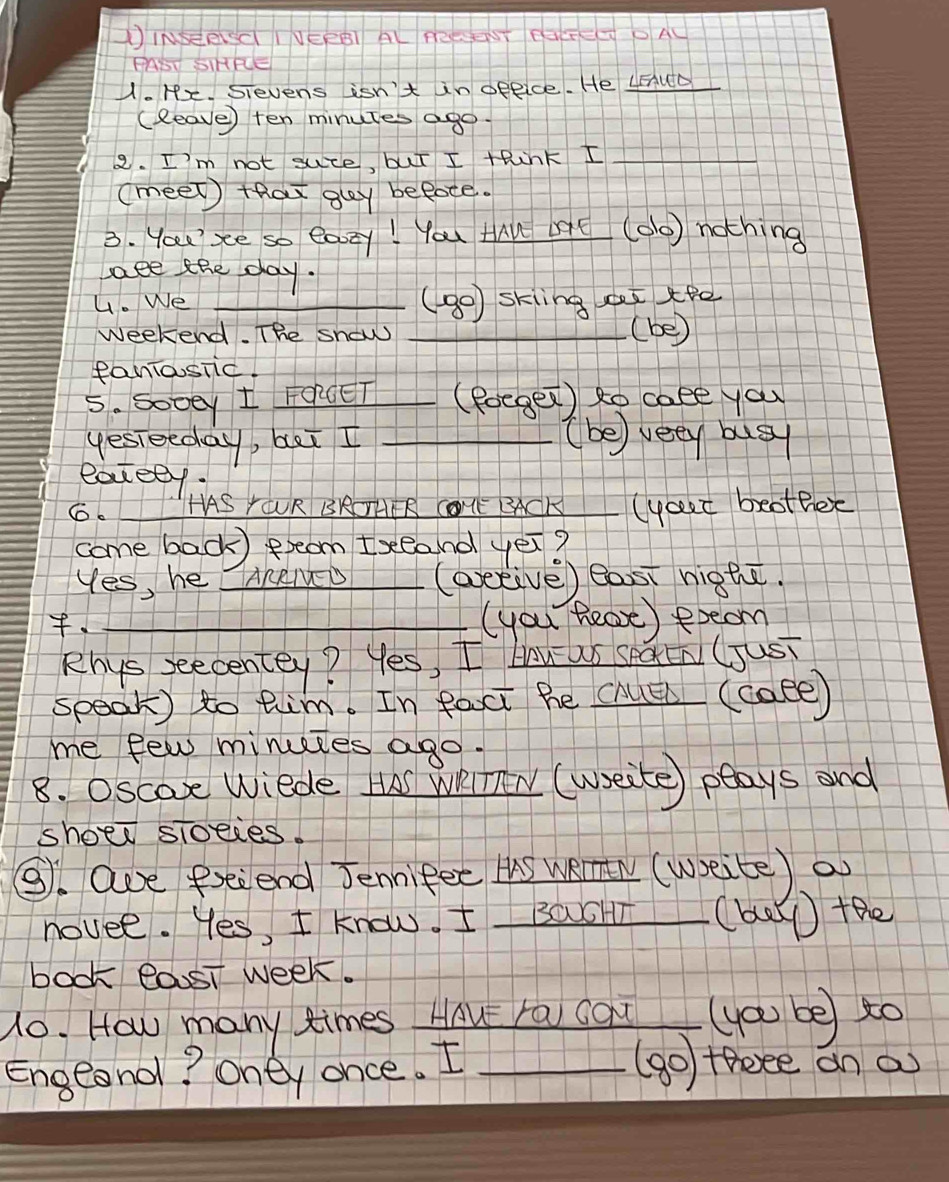 1) INSERISCI I VERBI AL PRESENT PERFECT O AL
PAST SIMPLE
1. Mr. Stevens isn't in office. He LEAVED
(leave) ten minutes ago.
2. I'm not sure, but I think I ________
(meet) that guy before.
3. You're so lazy! You HAVE DONE (do) nothing
all the day.
4. We ________ (go) skiing at the
weekend. The snow ________ (be)
fantastic.
5. Sorry I FORGET (forget) to call you
yesterday, but I ________ (be) very busy
lately.
6. HAS YOUR BROTHER COME BACK (your brother
come back) from Ireland yet?
Yes, he ARRIVED (arrive) last night.
7. ________ (you hear) from
Rhys recently? Yes, I HAVE SPOKEN (Just
speak) to him. In fact he CALLED (call)
me few minutes ago.
8. Oscar Wilde HAS WRITTEN (write) plays and
short stories.
9). Our friend Jennifer HAS WRITTEN (write) a
novel. Yes, I know. I BOUGHT (buy) the
book last week.
10. How many times HAVE YOU (you be) to
England? Only once. I ________ (go) there on a